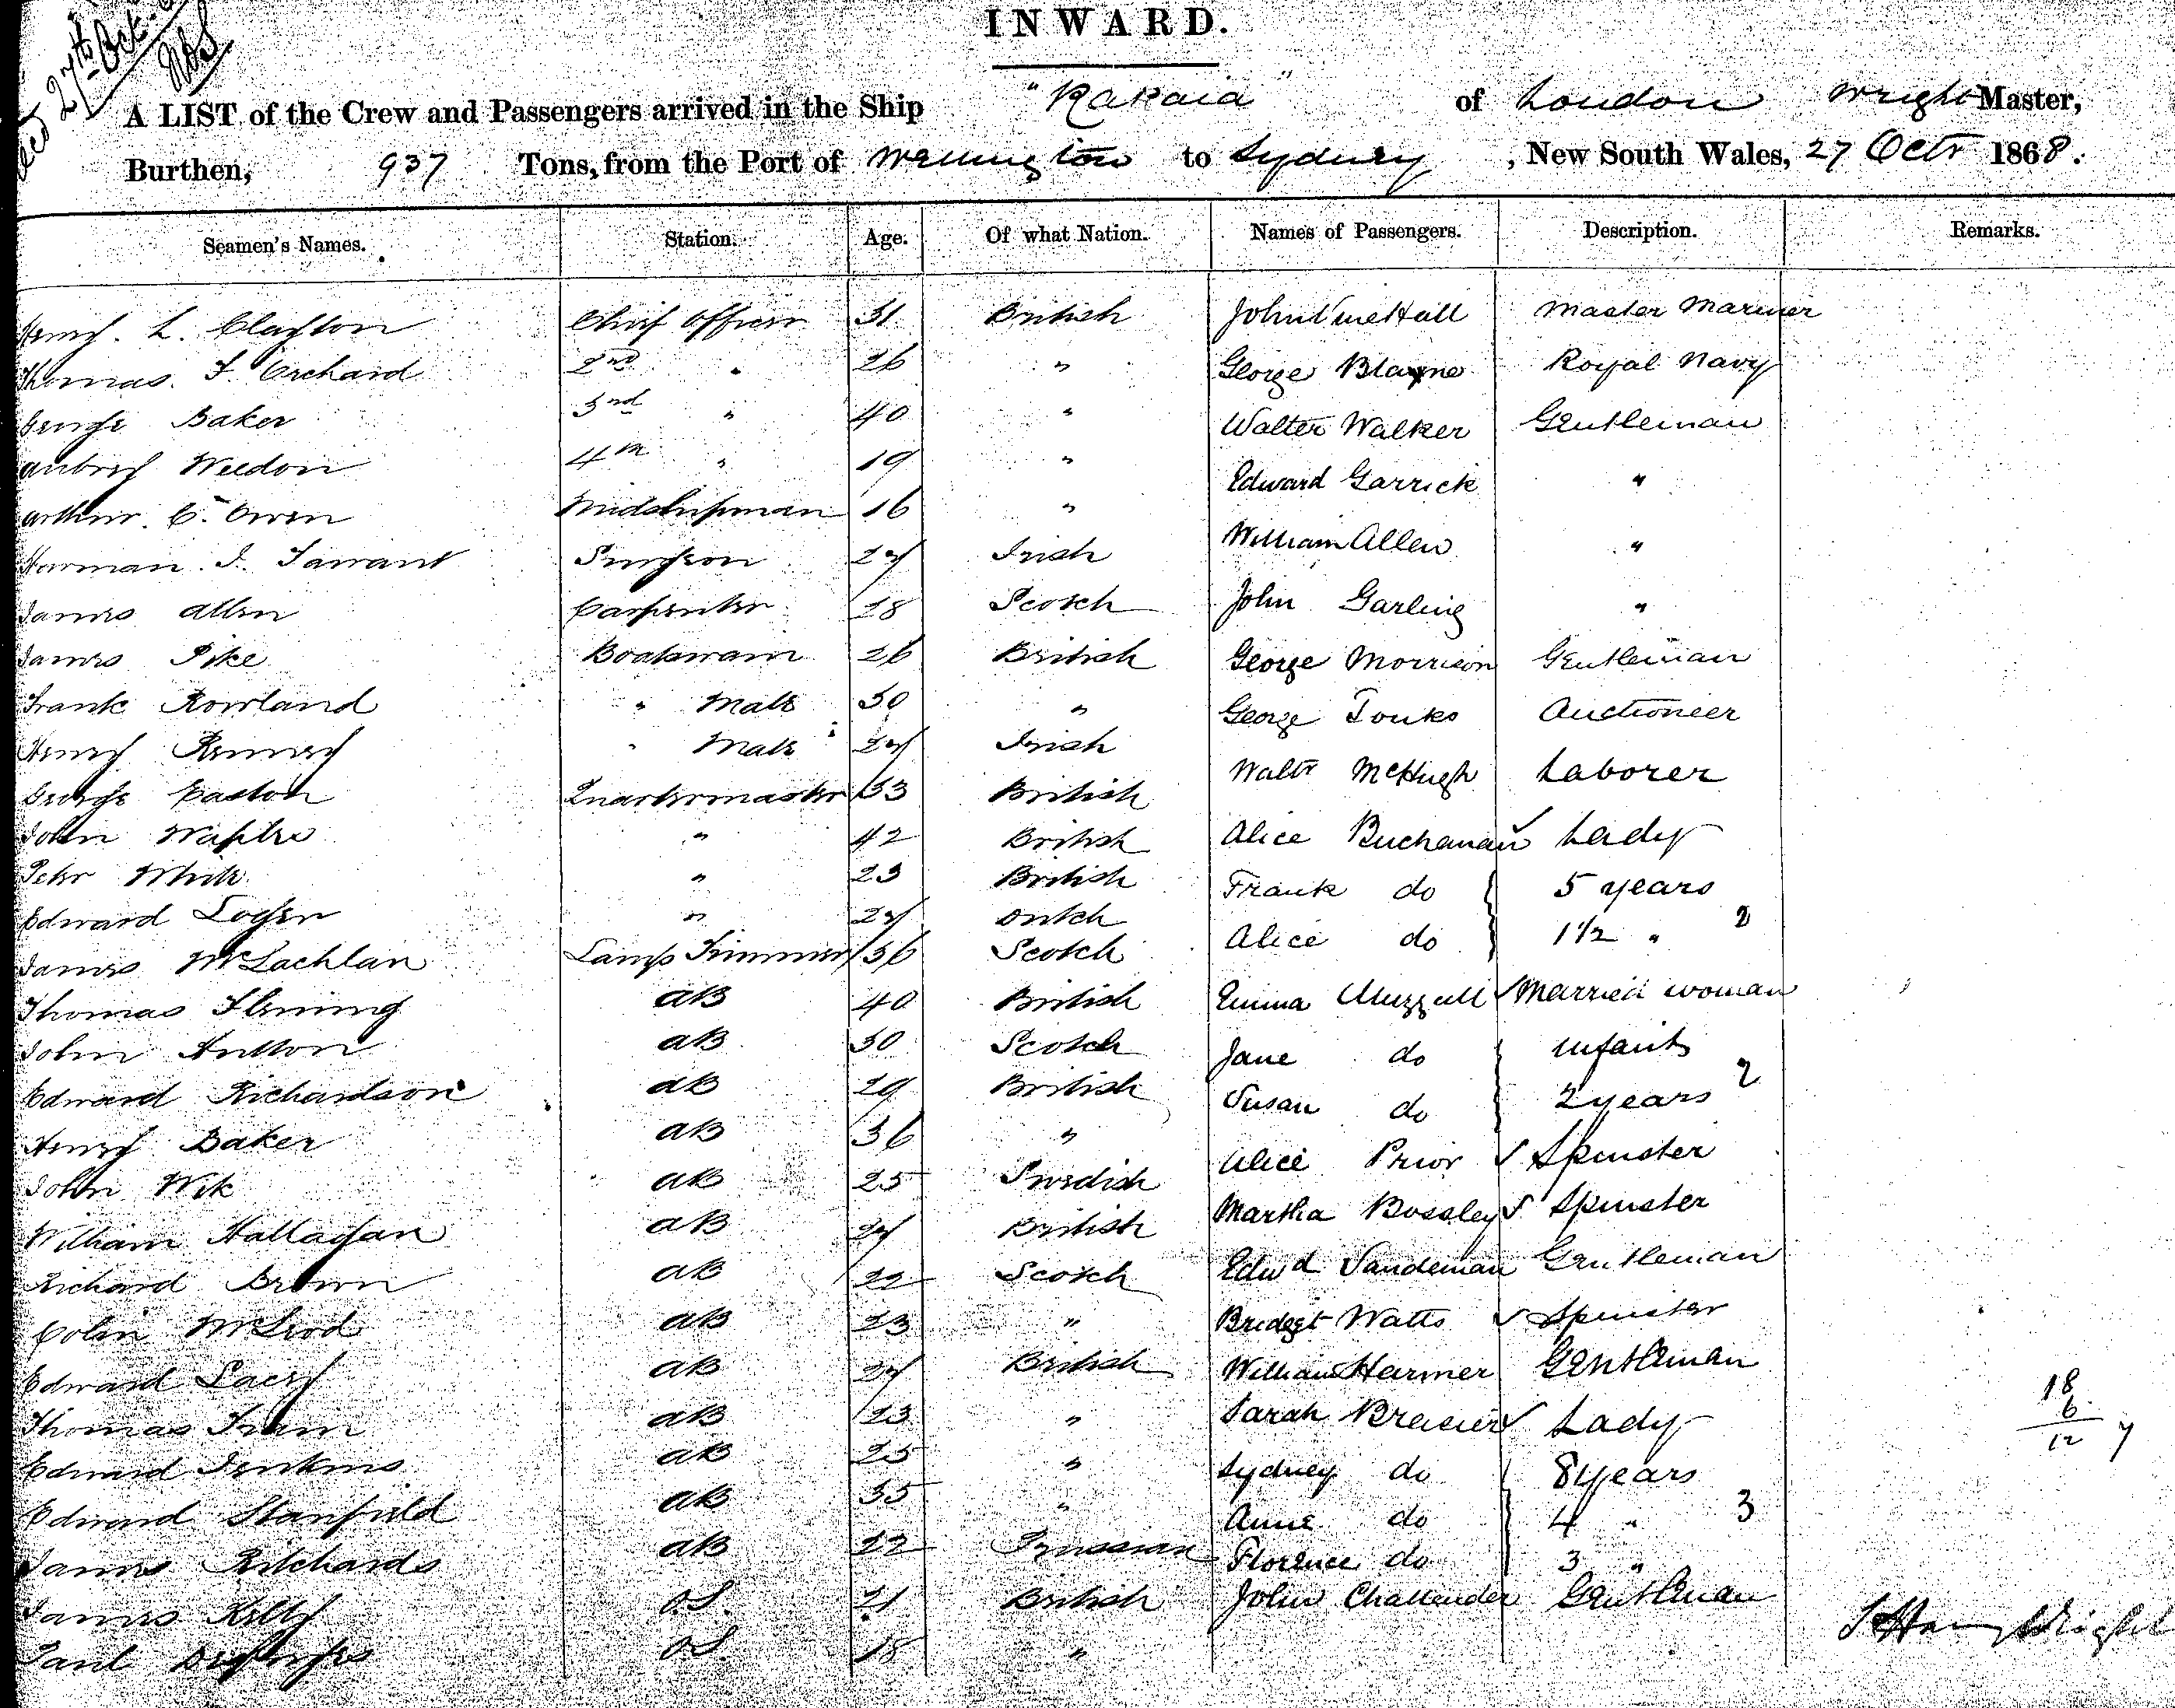 27th Oct
INWARD.
A LIST of the Crew and Passengers arrived in the Ship "Rakaia" of London Wright Master,
Burthen, 937 Tons, from the Port of Wellington to Sydney, New South Wales, 27 Octr 1868.
Seamen's Names. Station. Age. Of what Nation. Names of Passengers. Description. Remarks.
Henry L. Clayton Chief Officer 31 British John Vine Hall Master Mariner
Thomas F. Orchard 2nd " 26 " George Blayne Royal Navy
George Baker 3rd " 40 " Walter Walker Gentleman
Aubrey Weedon 4th " 19 " Edward Garrick "
Arthur C. Owen Midshipman 16 " William Allen "
Harman J. Tarrant Surgeon 27 Irish John Garling "
James Allen Carpenter 28 Scotch George Morrison Gentleman
James Pike Boatswain 26 British George Tonks Auctioneer
Frank Rowland " Mate 30 " Walter McHugh Laborer
Henry " Mate 27 Irish Alice Buchanan Lady
George Easton Quartermaster 33 British Frank do 5 years
John " 42 British Alice do 1 1/2 " 2
Peter White " 23 British Emma Muzzall Married woman
Edward " 27 Dutch Jane do infant
James McLachlan Lamp Trimmer 36 Scotch Susan do 2 years 2
Thomas Fleming AB 40 British Alice Prior Spinster
John Hutton AB 30 Scotch Martha Bossley Spinster
Edward Richardson AB 29 British Edwd Sandeman Gentleman
Henry Baker AB 36 " Bridget Watts Spinster
John Wik AB 25 Swedish William Harmer Gentleman
William Hallagan AB 27 British Sarah Lady
Richard Brown AB 22 Scotch Sydney do 8 years
Colin McLeod AB 23 " Anne do 4 " 3
Edward Lacey AB 27 British Florence do 3 "
Thomas AB 23 " John Challender Gentleman
Edward Jenkins AB 25 "
Edward Stanfield AB 35 "
James Ritchards AB 22 Prussian
James Kelly O.S. 21 British
Paul O.S. 18 "
18
6
12 7
Wright